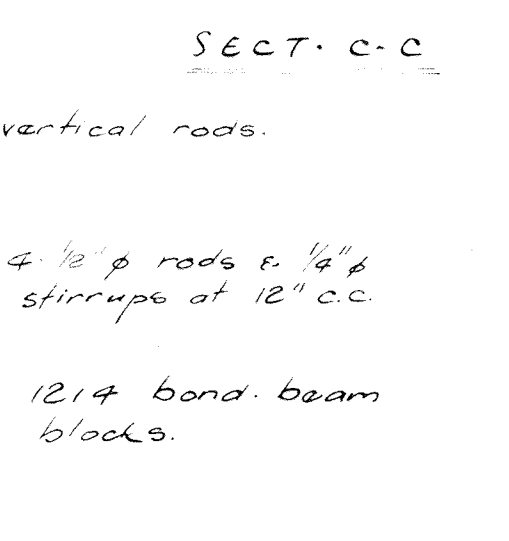 SECT. C-C
vertical rods.
4-1/2" ϕ rods & 1/4" ϕ
stirrups at 12" c.c.
1214 bond. beam
blocks.